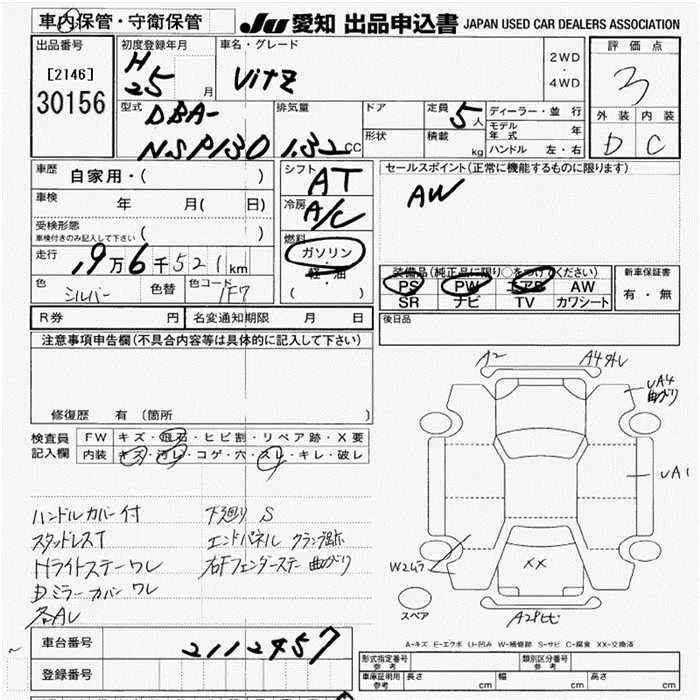 車内保管・守衛保管
JU 愛知 出品申込書 JAPAN USED CAR DEALERS ASSOCIATION
出品番号
[2146]
30156
初度登録年月
H
25 月
車名・グレード
Vitz
2WD
・
4WD
評価点
3
外装 内装
D C
型式
DBA-
NSP130
排気量
1.32 CC
ドア
形状
定員
5人
積載
kg
ディーラー・並行
モデル年式 年
ハンドル 左・右
車歴
自家用・( )
車検
年 月( 日)
受検形態
車検付きのみ記入して下さい ( )
走行
,9万6千521km
色
シルバー
色替
色コード
1F7
シフト
AT
冷房
A/C
燃料
ガソリン
・
軽・油
( )
セールスポイント(正常に機能するものに限ります)
AW
装備品(純正品に限り○をつけてください)
PS PW エアB AW
SR ナビ TV カワシート
新車保証書
有・無
R券 円
名変通知期限 月 日
後日品
注意事項申告欄(不具合内容等は具体的に記入して下さい)
修復歴 有 (箇所 )
検査員
記入欄
FW キズ・飛石・ヒビ割・リペア跡・X要
内装 キズ・汚レ・コゲ・穴・スレ・キレ・破レ
ハンドルカバー付
スタッドレスT
Hライトステーワレ
Dミラーカバーワレ
各AU
下廻り S
エンドパネル クランプ跡
右Fフェンダーステー曲がり
A2
A4外し
UA4
曲がり
UA1
W2ムラ
XX
スペア
A-キズ E-エクボ U-凹み W-補修跡 S-サビ C-腐食 XX-交換済
車台番号
2112457
登録番号
形式指定番号
参考
類別区分番号
参考
車庫証明用
参考
長さ cm
幅 cm
高さ cm